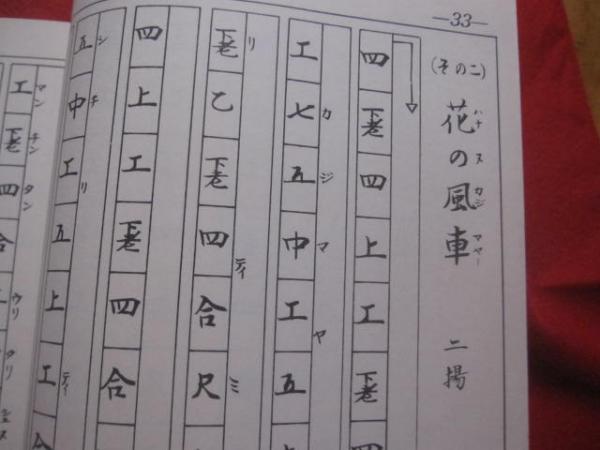 —33—
(その二) 花の風車 二揚
ハナヌカジマヤー
四下老四上工下老四
工七五中工五
カジマヤ
下老乙下老四合尺
リティミ
四上工下老四合
五中工五上工合
シチリティ
工下老四合
マンチンタンウリタリ